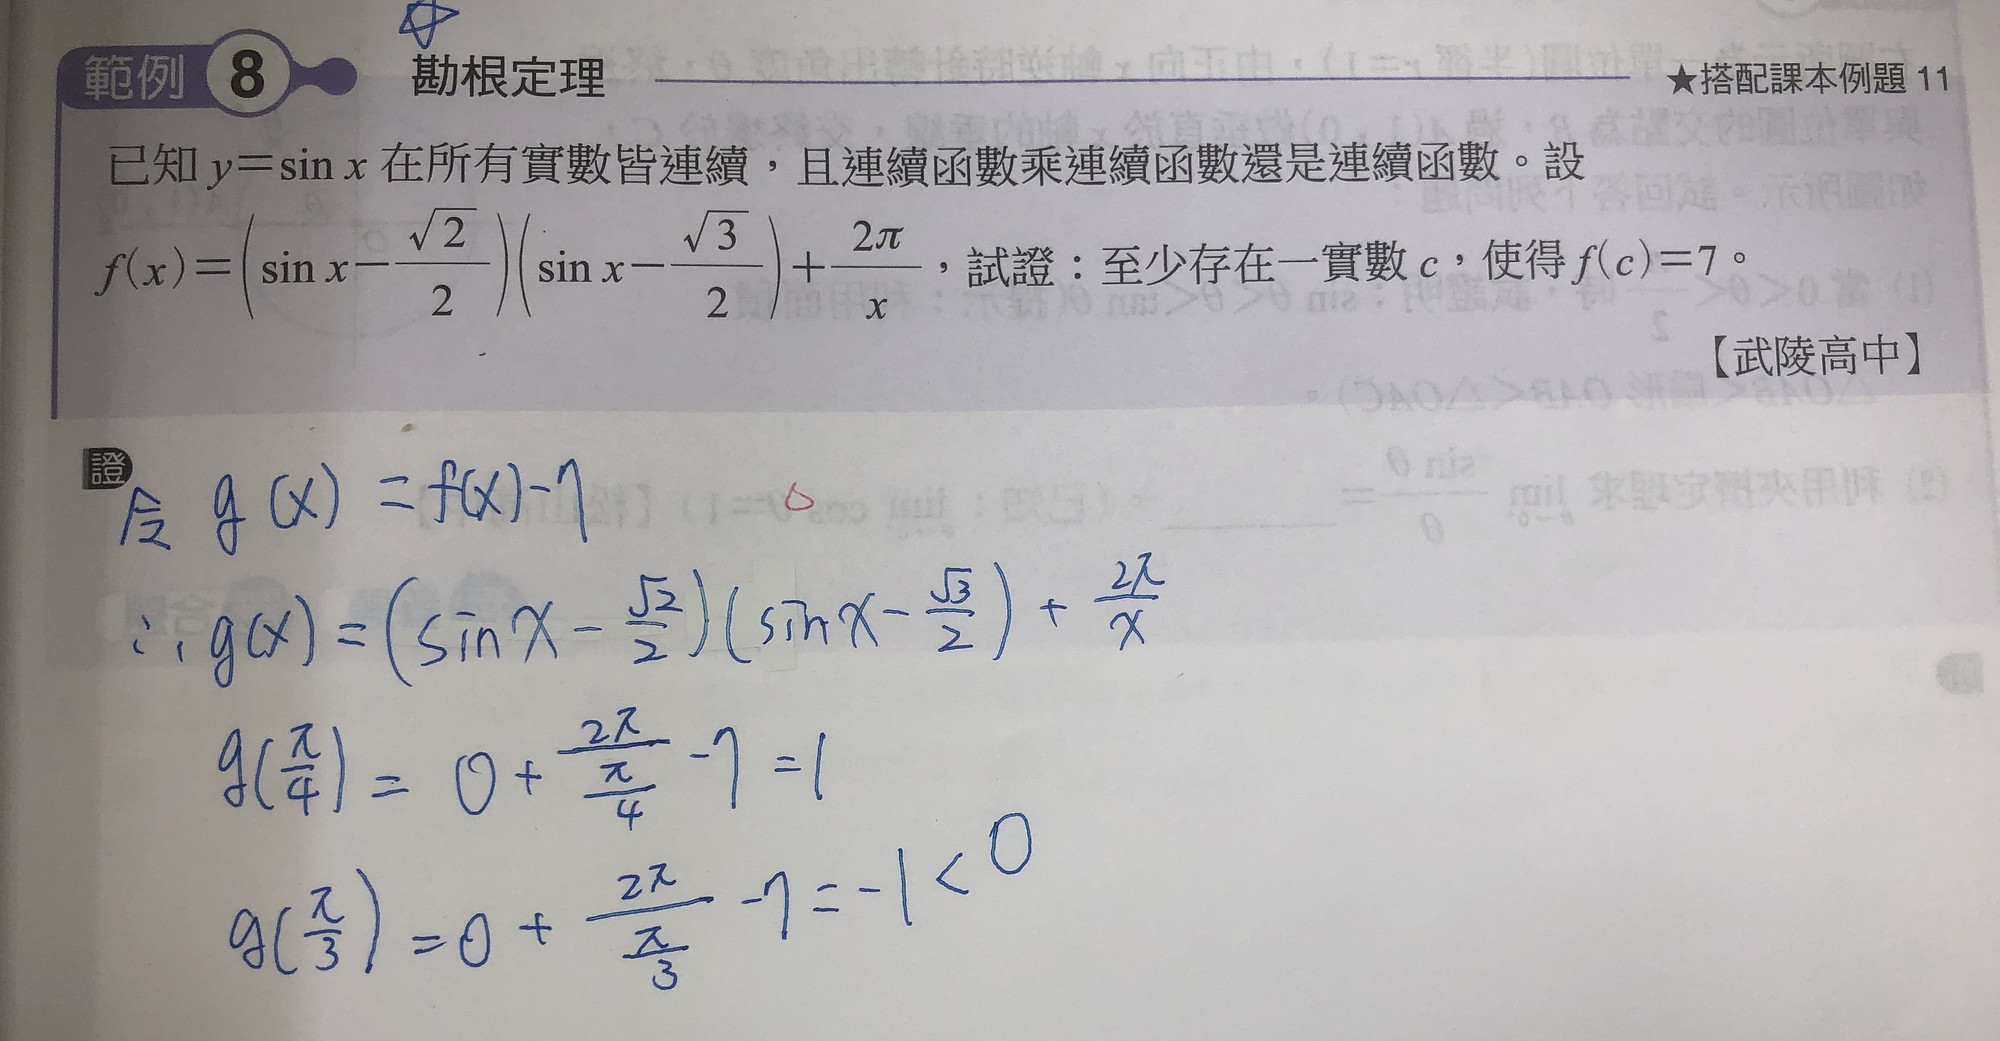 範例 8 勘根定理 ★搭配課本例題 11
已知 y=sin x 在所有實數皆連續，且連續函數乘連續函數還是連續函數。設
f(x)=(sin x−√2/2)(sin x−√3/2)+2π/x，試證：至少存在一實數 c，使得 f(c)=7。
【武陵高中】
證
令 g(x) = f(x)-7
∴ g(x) = (sin x - √2/2)(sin x - √3/2) + 2π/x
g(π/4) = 0 + 2π/(π/4) - 7 = 1
g(π/3) = 0 + 2π/(π/3) - 7 = -1 < 0